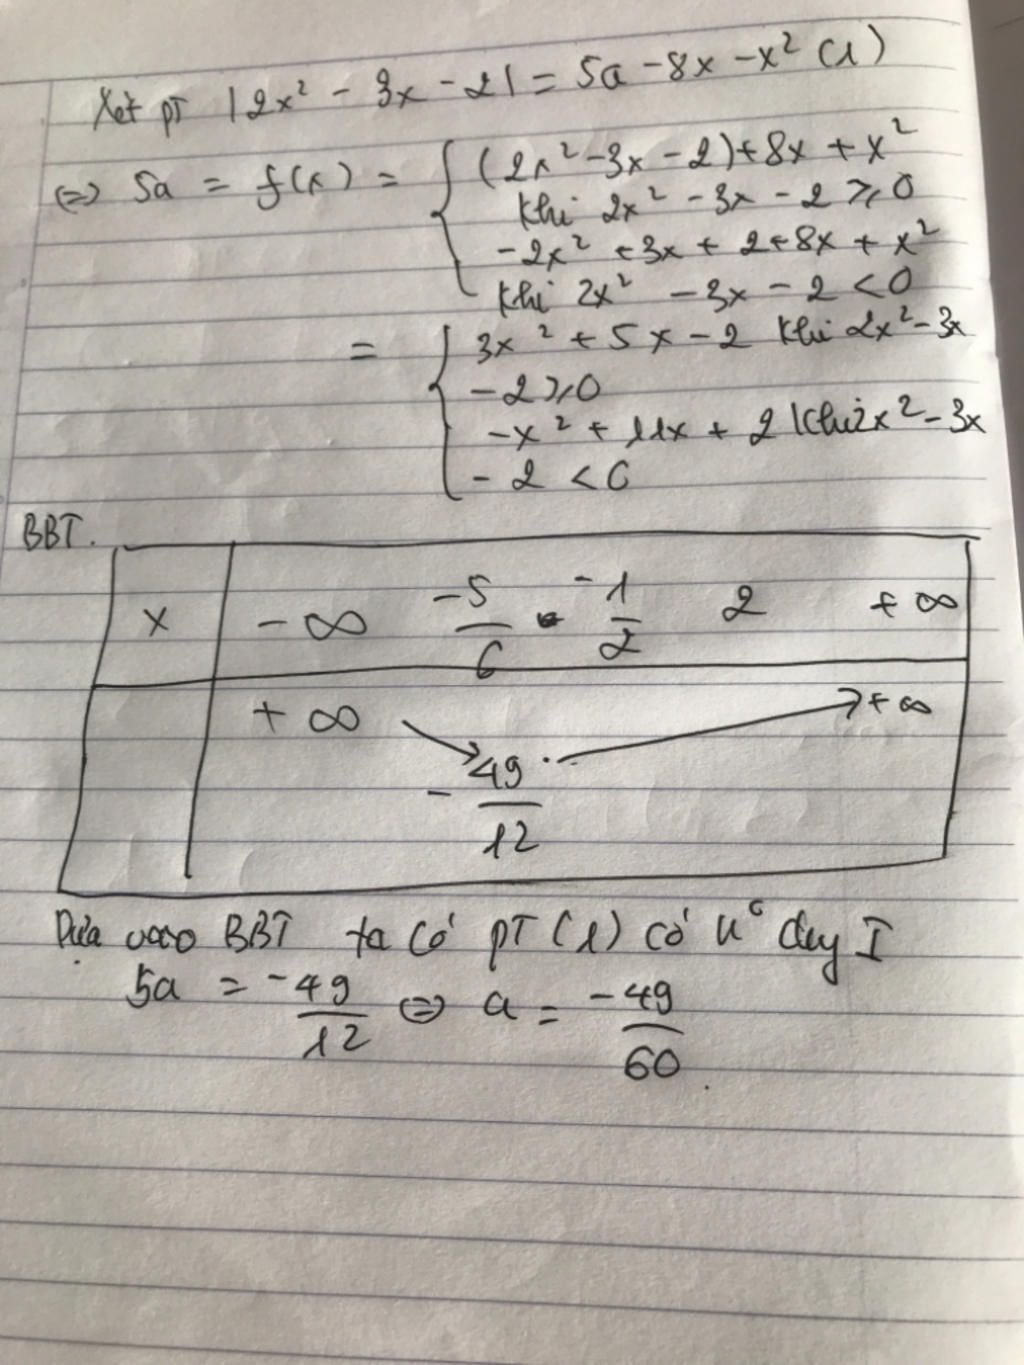 Xét pt |2x² - 3x - 2| = 5a - 8x - x² (1)
⇔ 5a = f(x) = { (2x² - 3x - 2) + 8x + x²
khi 2x² - 3x - 2 ⩾ 0
-2x² + 3x + 2 + 8x + x²
khi 2x² - 3x - 2 < 0
= { 3x² + 5x - 2 khi 2x² - 3x
- 2 ⩾ 0
-x² + 11x + 2 khi 2x² - 3x
- 2 < 0
BBT.
x -∞ -5/6 -1/2 2 +∞
+∞ +∞
-49/12
Dựa vào BBT ta có pT (1) có n⁰ duy I
5a = -49/12 ⇔ a = -49/60.